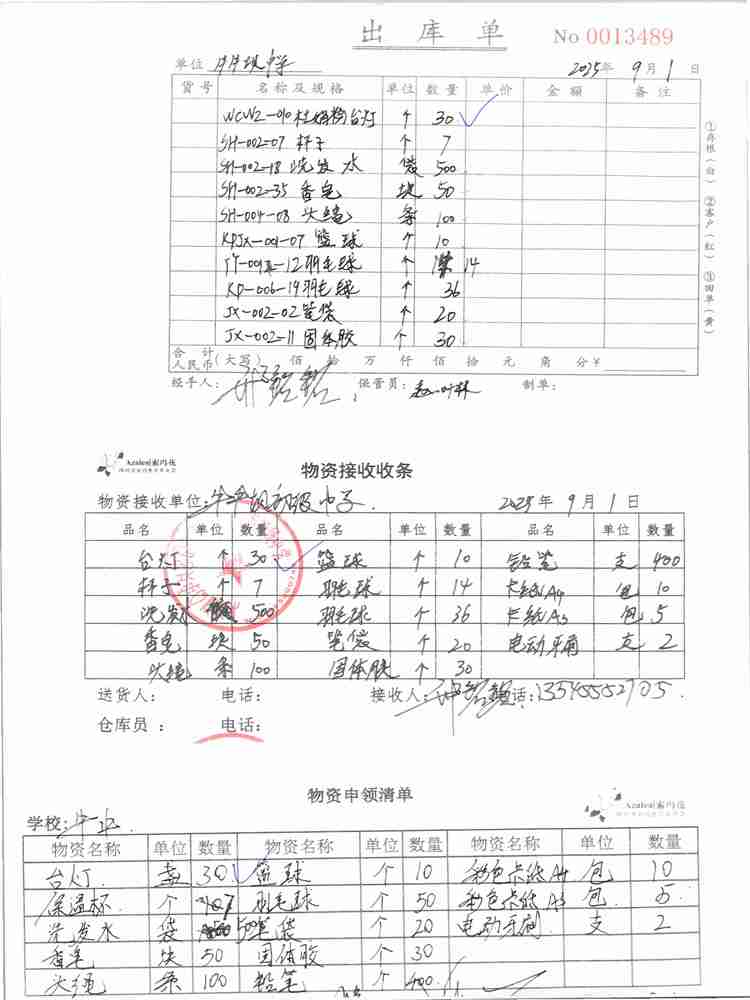 出库单 No 0013489
单位 牛牛坝中学 2025年9月1日
货号 名称及规格 单位 数量 单价 金额 备注
WCWZ-010 杜姆构台灯 个 30
SH-002-07 杯子 个 7
SH-002-18 洗发水 袋 500
SH-002-35 香皂 块 50
SH-004-08 头绳 条 100
KPJX-001-07 篮球 个 10
-12羽毛球 个 14
KP-006-19羽毛球 个 36
JX-002-02笔袋 个 20
JX-002-11 固体胶 个 30
①存根(白) ②客户(红) ③回单(黄)
合计人民币(大写) 佰 拾 万 仟 佰 拾 元 角 分¥
经手人: 保管员: 制单:
Azalea|索玛花
物资接收收条
物资接收单位:牛牛坝初级中学. 2025年9月1日
品名 单位 数量 品名 单位 数量 品名 单位 数量
台灯 个 30 篮球 个 10 铅笔 支 400
杯子 个 7 羽毛球 个 14 卡纸A4 包 10
洗发水 500 羽毛球 个 36 卡纸A3 包 5
香皂 块 50 笔袋 个 20 电动牙刷 支 2
头绳 条 100 固体胶 个 30
送货人: 电话: 接收人: 电话:13545552705.
仓库员: 电话:
物资申领清单
Azalea|索玛花
学校:牛
物资名称 单位 数量 物资名称 单位 数量 物资名称 单位 数量
台灯. 盏 30 篮球 个 10 彩色卡纸A4 包 10
保温杯. 个 7 羽毛球 个 50 彩色卡纸A3 包. 5.
洗发水 袋 500 笔袋 个 20 电动牙刷 支 2
香皂 块 50 固体胶 个 30
头绳 条 100 铅笔 个 400.